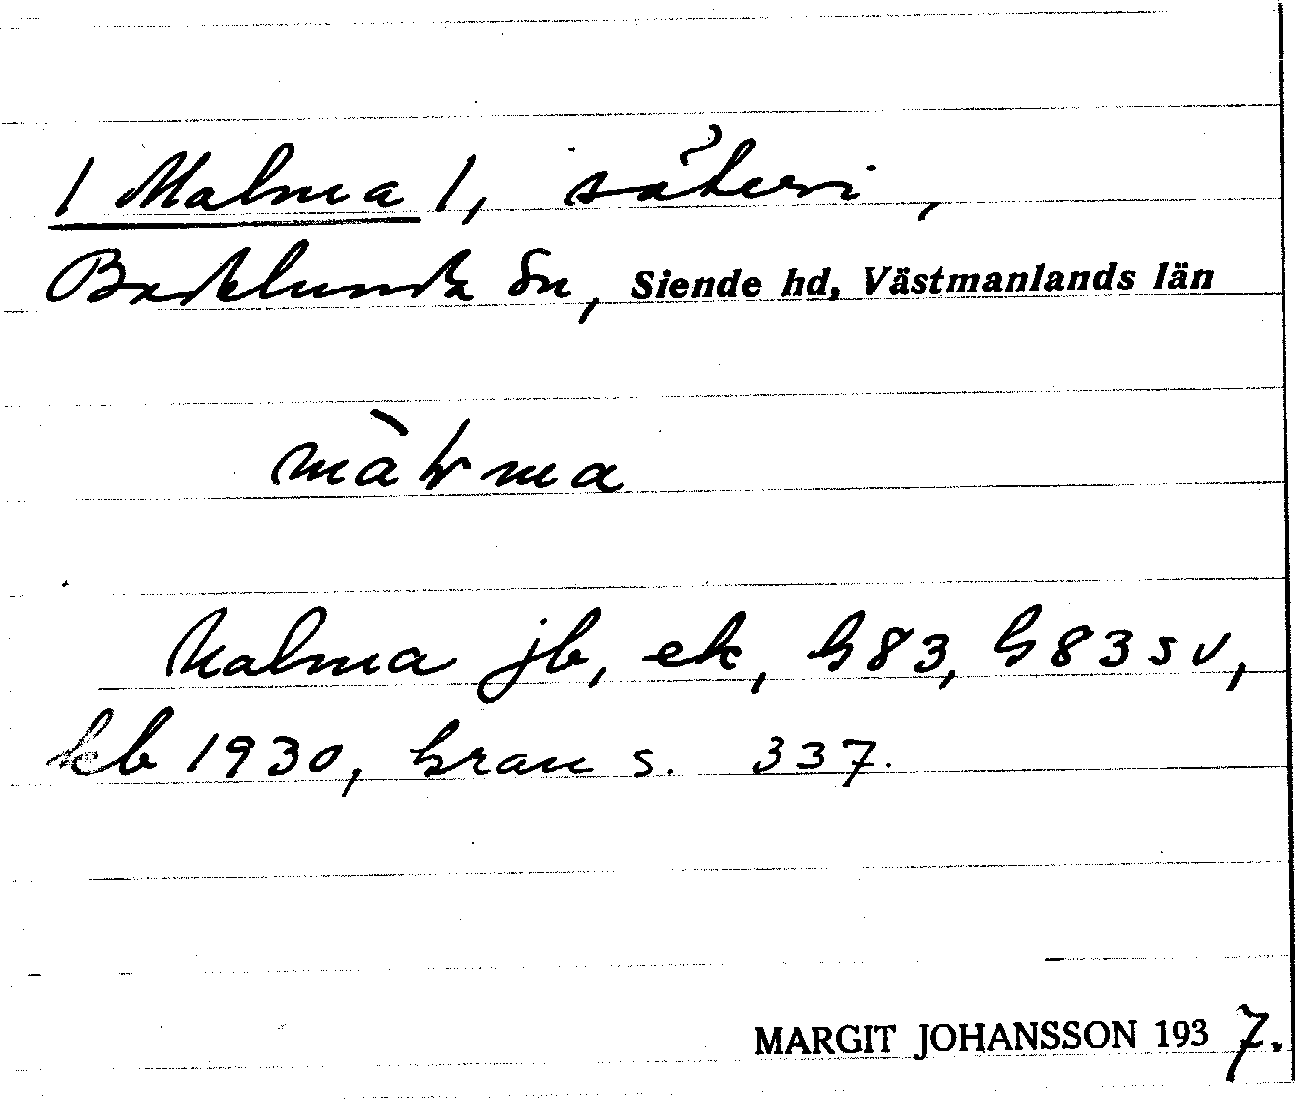 1 Malma 1, säteri,
Badelunda sn, Siende hd, Västmanlands län
màɬma
Malma jb, ek, h83, h83sv,
kb 1930, Gran s. 337.
MARGIT JOHANSSON 1937.